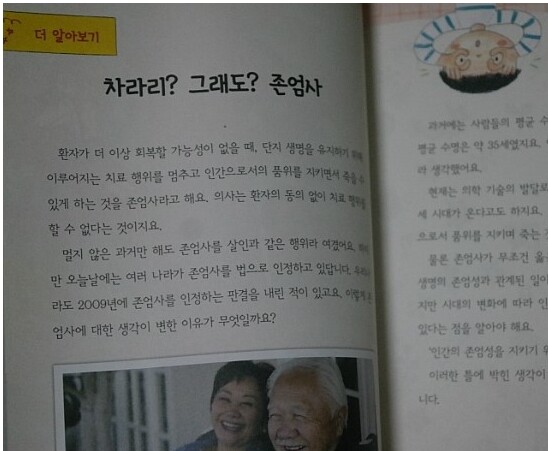 더 알아보기
차라리? 그래도? 존엄사
환자가 더 이상 회복할 가능성이 없을 때, 단지 생명을 유지하기 위해
이루어지는 치료 행위를 멈추고 인간으로서의 품위를 지키면서 죽을 수
있게 하는 것을 존엄사라고 해요. 의사는 환자의 동의 없이 치료 행위를
할 수 없다는 것이지요.
멀지 않은 과거만 해도 존엄사를 살인과 같은 행위라 여겼어요. 하지
만 오늘날에는 여러 나라가 존엄사를 법으로 인정하고 있답니다. 우리나
라도 2009년에 존엄사를 인정하는 판결을 내린 적이 있고요. 이렇게 존
엄사에 대한 생각이 변한 이유가 무엇일까요?
과거에는 사람들의 평균 수
평균 수명은 약 35세였지요.
라 생각했어요.
현재는 의학 기술의 발달로
세 시대가 온다고도 하지요.
으로서 품위를 지키며 죽는
물론 존엄사가 무조건 옳
생명의 존엄성과 관계된 일이
지만 시대의 변화에 따라 인
있다는 점을 알아야 해요.
'인간의 존엄성을 지키기 위
이러한 틀에 박힌 생각이
니다.